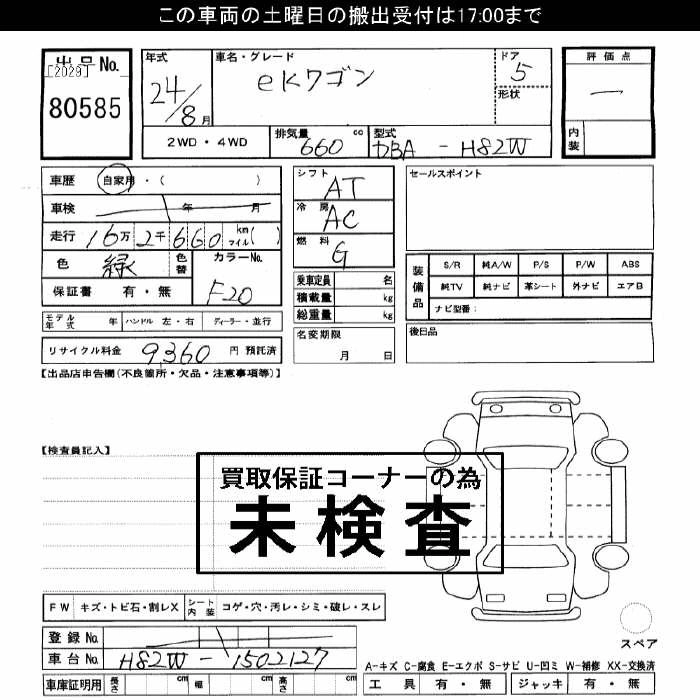 この車両の土曜日の搬出受付は17:00まで
出品No.
[2029]
80585
年式
24/8月
車名・グレード
eKワゴン
ドア
5
形状
評価点
一
内装
2WD・4WD
排気量
660 cc
型式
DBA - H82W
車歴 自家用・( )
車検 年 月
走行 16万2千660 km マイル( )
色 緑 色替 カラーNo.
F20
保証書 有・無
モデル年式 年 ハンドル 左・右 ディーラー・並行
リサイクル料金 9,360 円 預託済
シフト
AT
冷房
AC
燃料
G
乗車定員 名
積載量 kg
総重量 kg
名変期限
月 日
セールスポイント
装備品
S/R 純A/W P/S P/W ABS
純TV 純ナビ 革シート 外ナビ エアB
ナビ型番:
後日品
【出品店申告欄(不良箇所・欠品・注意事項等)】
【検査員記入】
買取保証コーナーの為
未検査
FW キズ・トビ石・割レX シート内装 コゲ・穴・汚レ・シミ・破レ・スレ
登録No.
車台No. H82W - 1502127
車庫証明用 長さ cm 幅 cm 高さ cm
スペア
A-キズ C-腐食 E-エクボ S-サビ U-凹ミ W-補修 XX-交換済
工具 有・無 ジャッキ 有・無